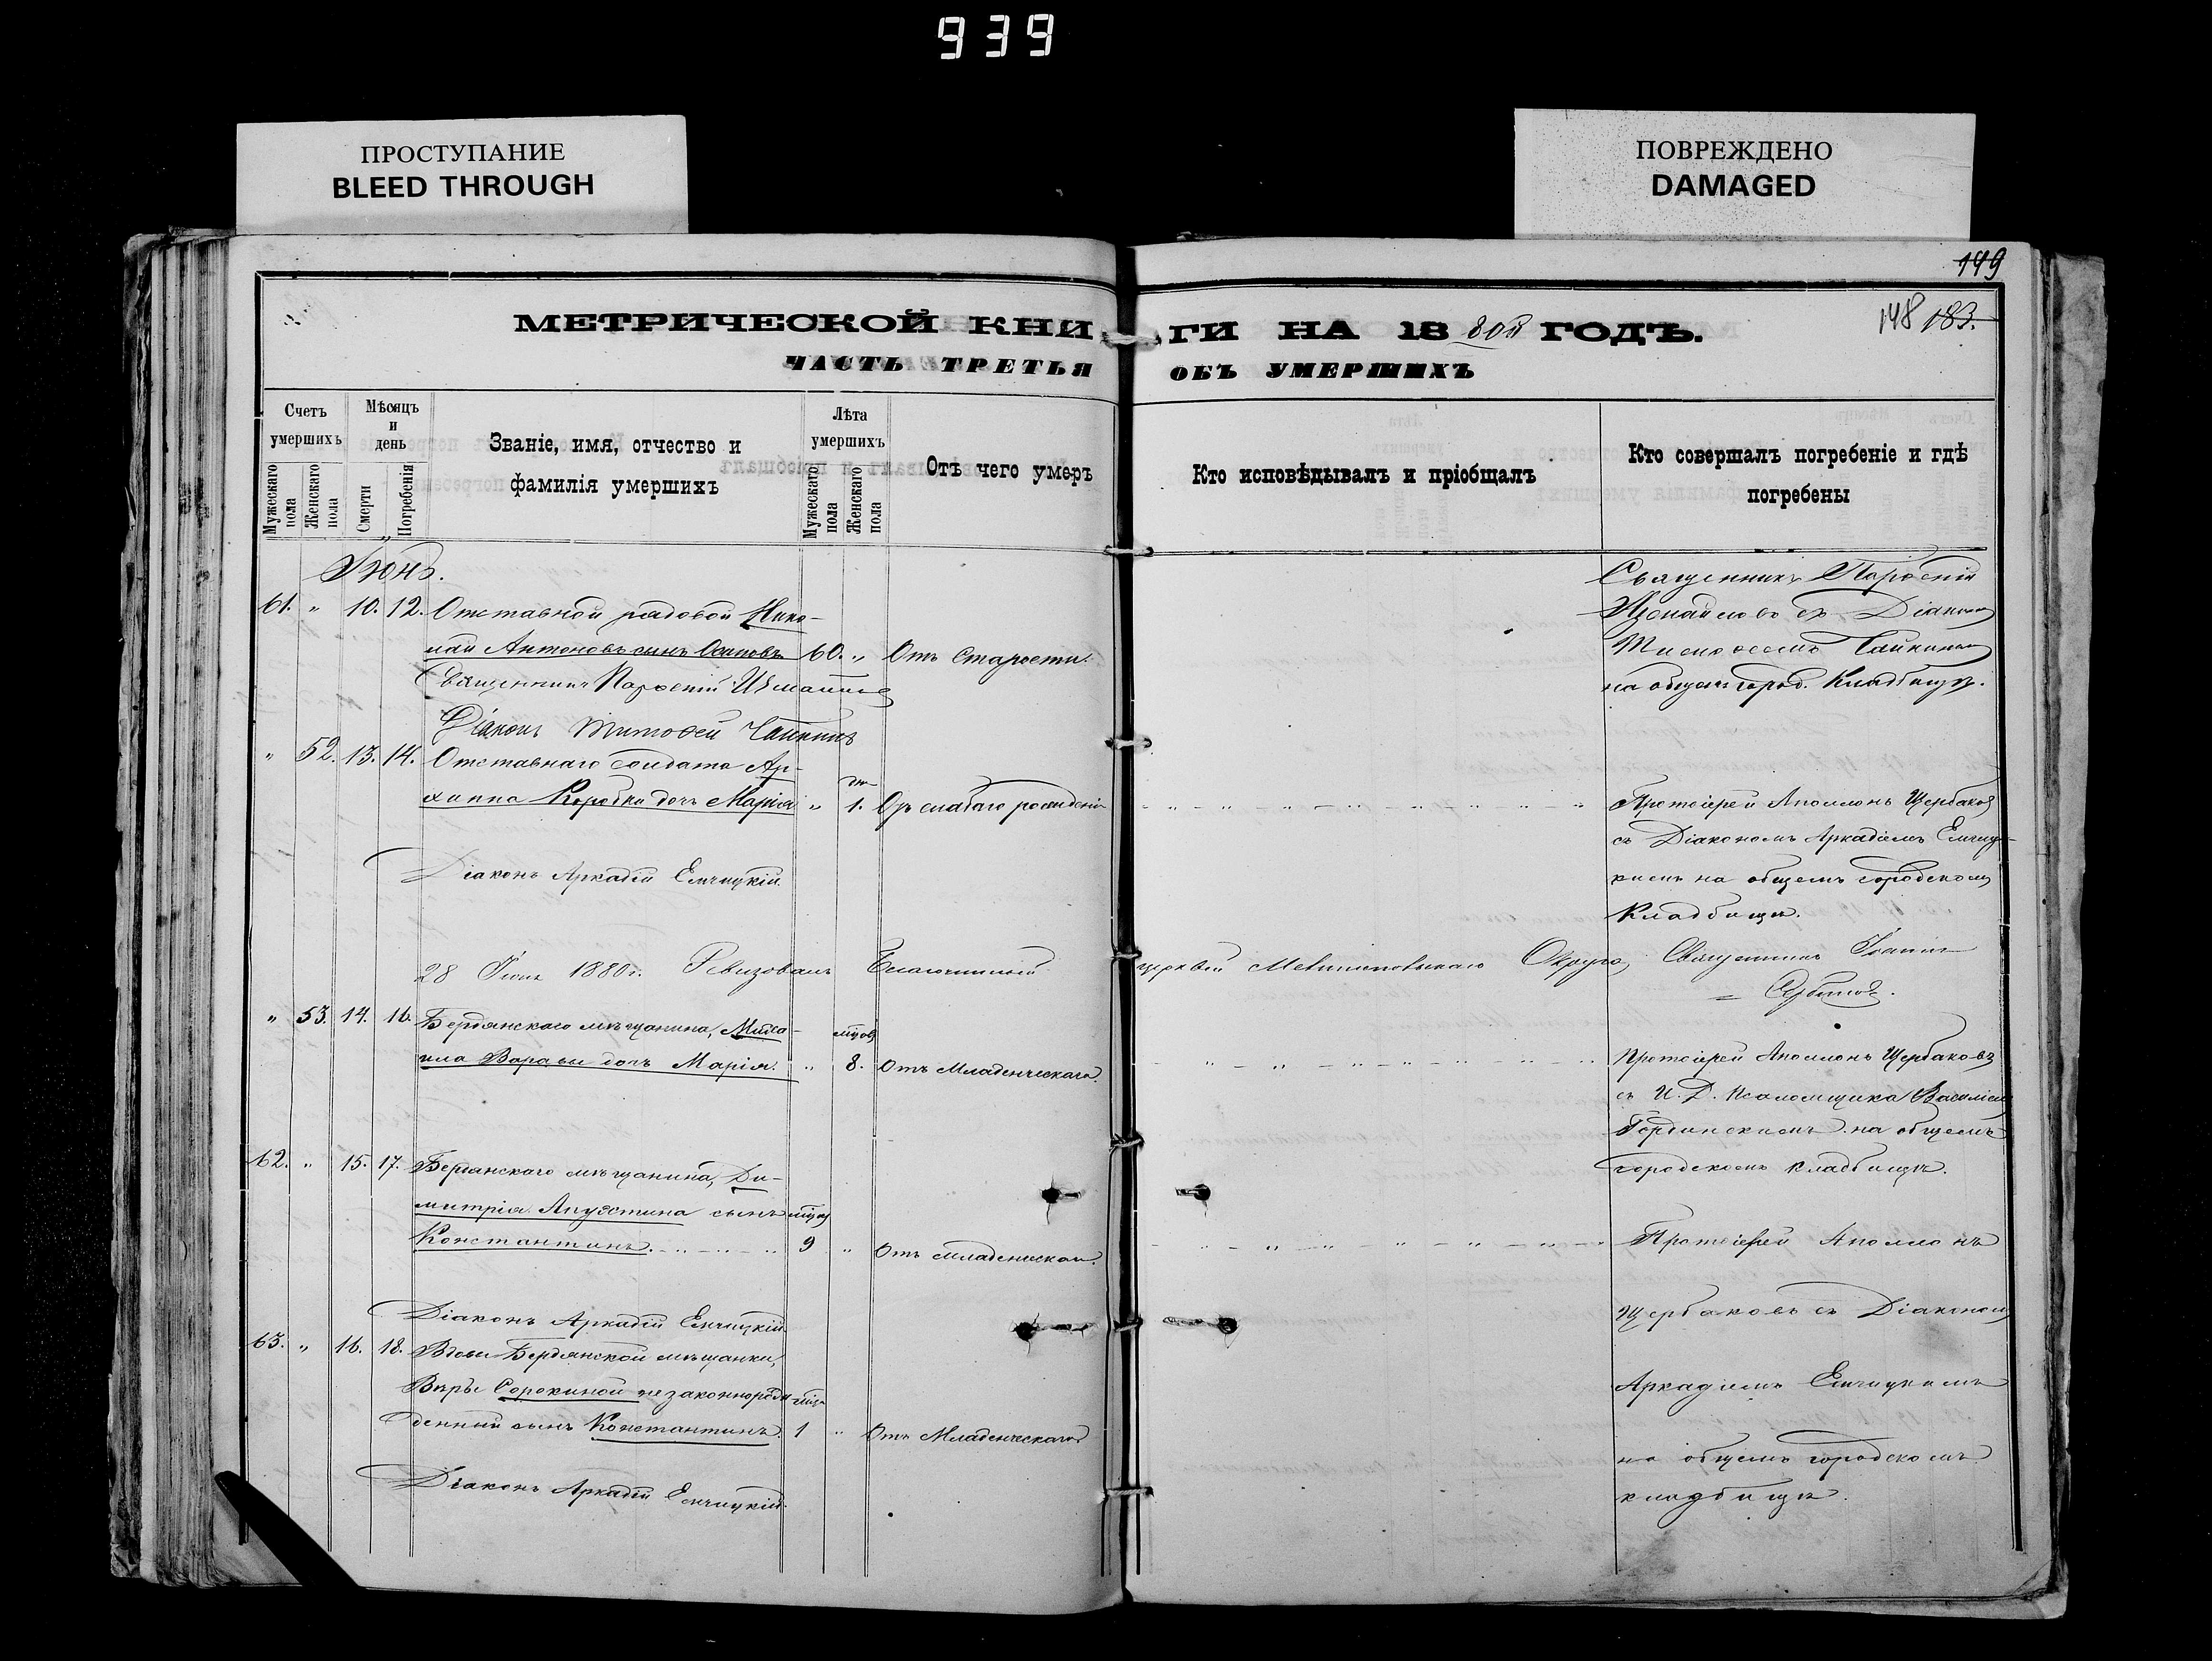 939
ПРОСТУПАНИЕ
BLEED THROUGH
ПОВРЕЖДЕНО
DAMAGED
149
148 183.
МЕТРИЧЕСКОЙ КНИ
ГИ НА 18 80й ГОДЪ.
ЧАСТЬ ТРЕТЬЯ
ОБЪ УМЕРШИХЪ
Счетъ умершихъ
Мужескаго пола
Женскаго пола
Мѣсяцъ и день
Смерти
Погребенія
Званіе, имя, отчество и
фамилія умершихъ
Лѣта умершихъ
Мужескаго пола
Женскаго пола
Отъ чего умеръ
Кто исповѣдывалъ и пріобщалъ
Кто совершалъ погребеніе и гдѣ
погребены
Іюнь.
61. " 10. 12. Отставной рядовой Нико-
лай Антоновъ сынъ Осиповъ 60. " Отъ Старости.
Священникъ Парѳеній
съ Діакон
на общем город. Кладбищѣ.
Священникъ Парѳеній Измаиловъ
Діаконъ Тимоѳей Чайкинъ
" 52. 13. 14. Отставнаго солдата Ар-
хиппа Коробки дочь Марія " 1. слабаго рожденія
Протоіерей Аполлонъ Щербаковъ
съ Діакономъ Аркадіемъ Емчиц-
кимъ на общемъ городскомъ
Кладбищѣ.
Діаконъ Аркадій Емчицкій.
28 Іюня 1880 г. Ревизовалъ Благочинный
церквей Мелитопольскаго Округа, Священникъ Іоаннъ
" 53. 14. 16. Бердянскаго мѣщанина, Миха-
ила Варавы дочь Марія. " 8. Отъ Младенческаго.
Протоіерей Аполлонъ Щербаковъ
съ И. Д. Псаломщика Василіем
на общемъ
городскомъ кладбищѣ.
62. " 15. 17. Бердянскаго мѣщанина, Ди-
митрія Апухтина сынъ
Константинъ. 9 " Отъ младенческаго.
Протоіерей Аполлонъ
Щербаковъ съ Діакономъ
Аркадіемъ Емчицкимъ
на общемъ городскомъ
кладбищѣ.
Діаконъ Аркадій Емчицкій.
63. " 16. 18. Вдовы Бердянской мѣщанки,
Вѣры Сорокиной незаконнорож-
денный сынъ Константинъ. 1 " Отъ Младенческаго
Діаконъ Аркадій Емчицкій.